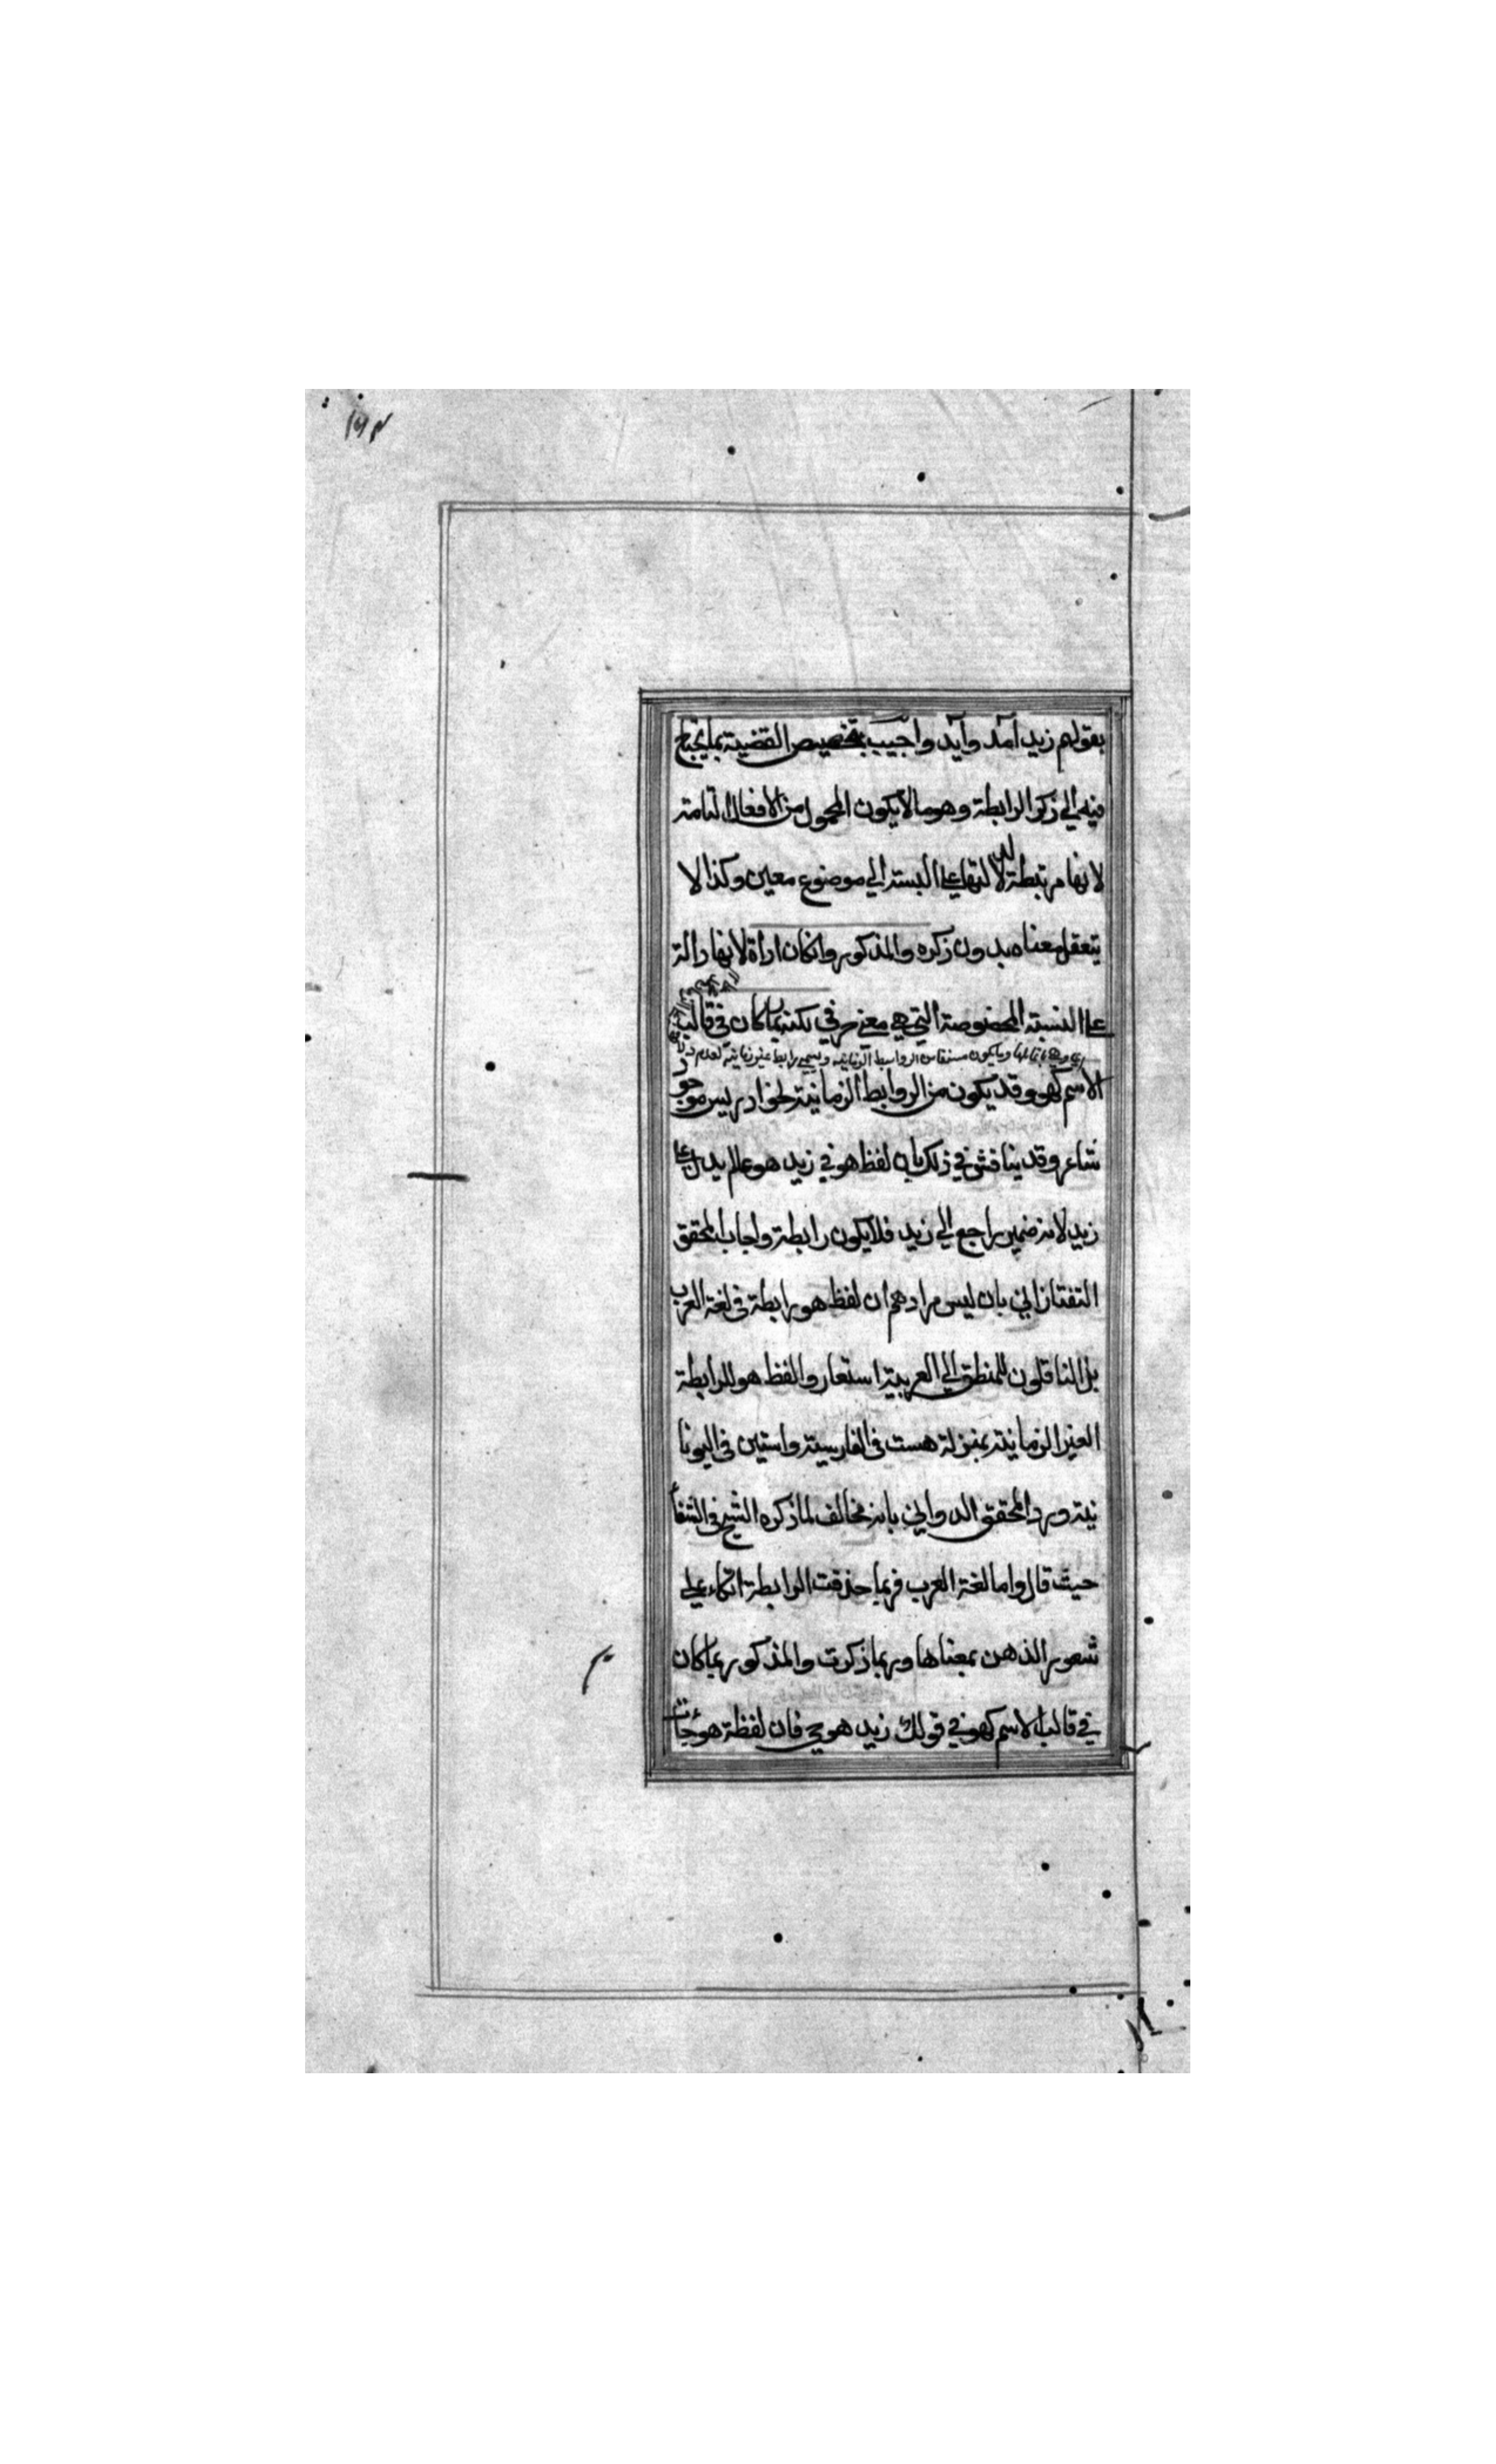 بقولهم زيد آمد وآيد واجيب بتخصيص القضية بما يحتاج
فيه الي ذكر الرابطة وهو ما لا يكون المحمول من الافعال التامة
لانها مرتبطة لدلالتها علي النسبة الي موضوع معين وكذا لا
يتعقل معناه بدون ذكره والمذكور وانكان اداة لانها دالة
علي النسبة المخصوصة التي هي معني حرفي لكنه ربما كان في قالب
الاسم كهو وقد يكون من الروابط الزمانية نحو ادريس موجود
شاعر وقد يناقش في ذلك بان لفظ هو في زيد هو عالم يدل علي
زيد لانه ضمير راجع الي زيد فلا يكون رابطة واجاب المحقق
التفتازاني بان ليس مرادهم ان لفظ هو رابطة في لغة العرب
بل الناقلون للمنطق الي العربية استعاروا لفظ هو للرابطة
الغير الزمانية بمنزلة هست في الفارسية واستين في اليونا
نية ورد المحقق الدواني بانه مخالف لما ذكره الشيخ في الشفاء
حيث قال واما لغة العرب فربما حذفت الرابطة اتكاء علي
شعور الذهن بمعناها وربما ذكرت والمذكور ربما كان
في قالب الاسم كهو في قولك زيد هو حي فان لفظة هو جائت